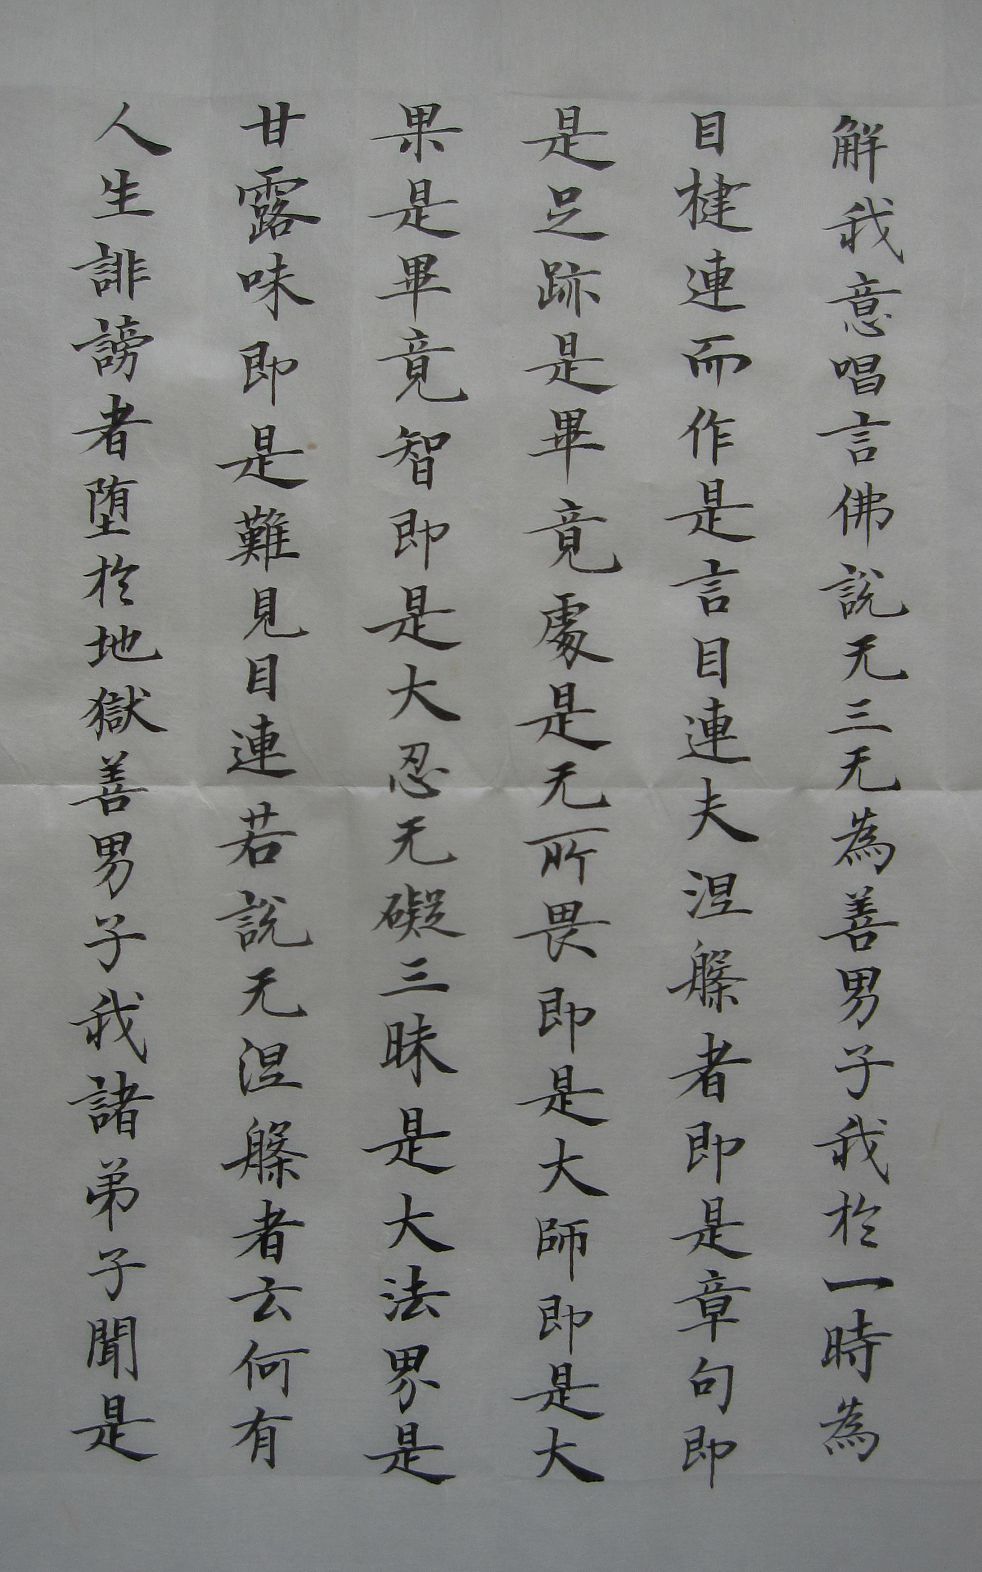 解我意唱言佛說无三无為善男子我於一時為
目楗連而作是言目連夫涅槃者即是章句即
是足跡是畢竟處是无所畏即是大師即是大
果是畢竟智即是大忍无礙三昧是大法界是
甘露味即是難見目連若說无涅槃者云何有
人生誹謗者堕於地獄善男子我諸弟子聞是